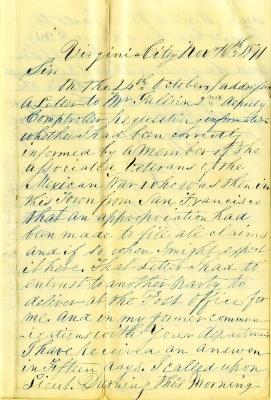 Virginia City Nov 16th 1871
Sir
On the 24th October I address
a Letter to Mr. 2nd deputy
Comptroller requesting information
whether I had been correctly
informed by a member of the
associated Veterans of the
Mexican War who was then in
this Town from San Francisco
that an appropriation had
been made to file all claims
and if so when I might expect
it here. That letter I had to
entrust to another party to
deliver at the Post office for
me. And in my former commun
ications with your department
I have received an answer
in fifteen days. I called upon
Lieut. This Morning